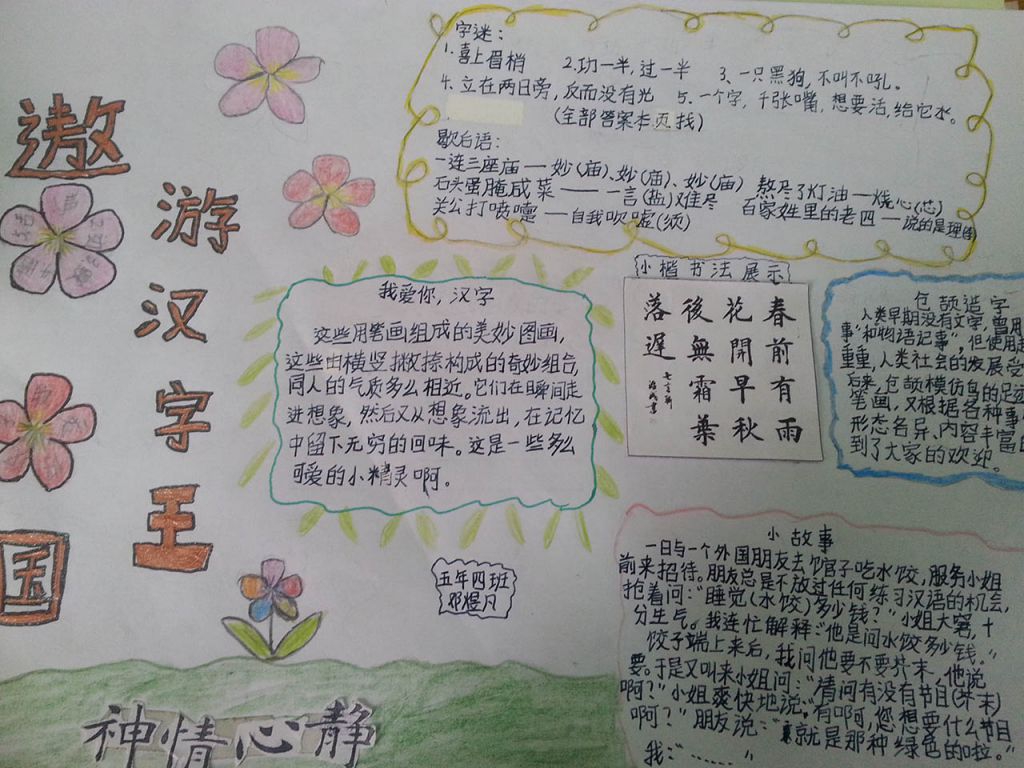 遨
游
汉
字
王
国
字谜：
1.喜上眉梢 2.功一半,过一半 3、一只黑狗,不叫不吼。
4.立在两日旁,反而没有光 5.一个字,千张嘴,想要活,给它水。
(全部答案本页找)
歇后语：
一连三座庙——妙(庙)、妙(庙)、妙(庙) 熬尽了灯油—烧心(芯)
石头蛋腌咸菜——一言(盐)难尽 百家姓里的老四—说的是理(李)
关公打喷嚏——自我吹嘘(须)
我爱你,汉字
这些用笔画组成的美妙图画,
这些由横竖撇捺构成的奇妙组合,
同人的气质多么相近。它们在瞬间走
进想象,然后又从想象流出,在记忆
中留下无穷的回味。这是一些多么
可爱的小精灵啊。
小楷书法展示
春前有雨
花開早秋
後無霜葉
落遲
仓颉造字
人类早期没有文字,曾用
事”和“物语记事”,但使用起
重重,人类社会的发展受
石来,仓颉模仿鸟的足迹
笔画,又根据各种事
形态各异、内容丰富
到了大家的欢迎。
五年四班
邓煜凡
小故事
一日与一个外国朋友去饺馆子吃水饺,服务小姐
前来招待。朋友总是不放过任何练习汉语的机会,
抢着问:“睡觉(水饺)多少钱?”小姐大窘,十
分生气。我连忙解释:“他是问水饺多少钱。”
饺子端上来后,我问他要不要芥末,他说
要。于是又叫来小姐问:“请问有没有节目(芥末)
啊?”小姐爽快地说:“有啊,您想要什么节目
啊?”朋友说:“就是那种绿色的啦。”
我:“……”
神情心静